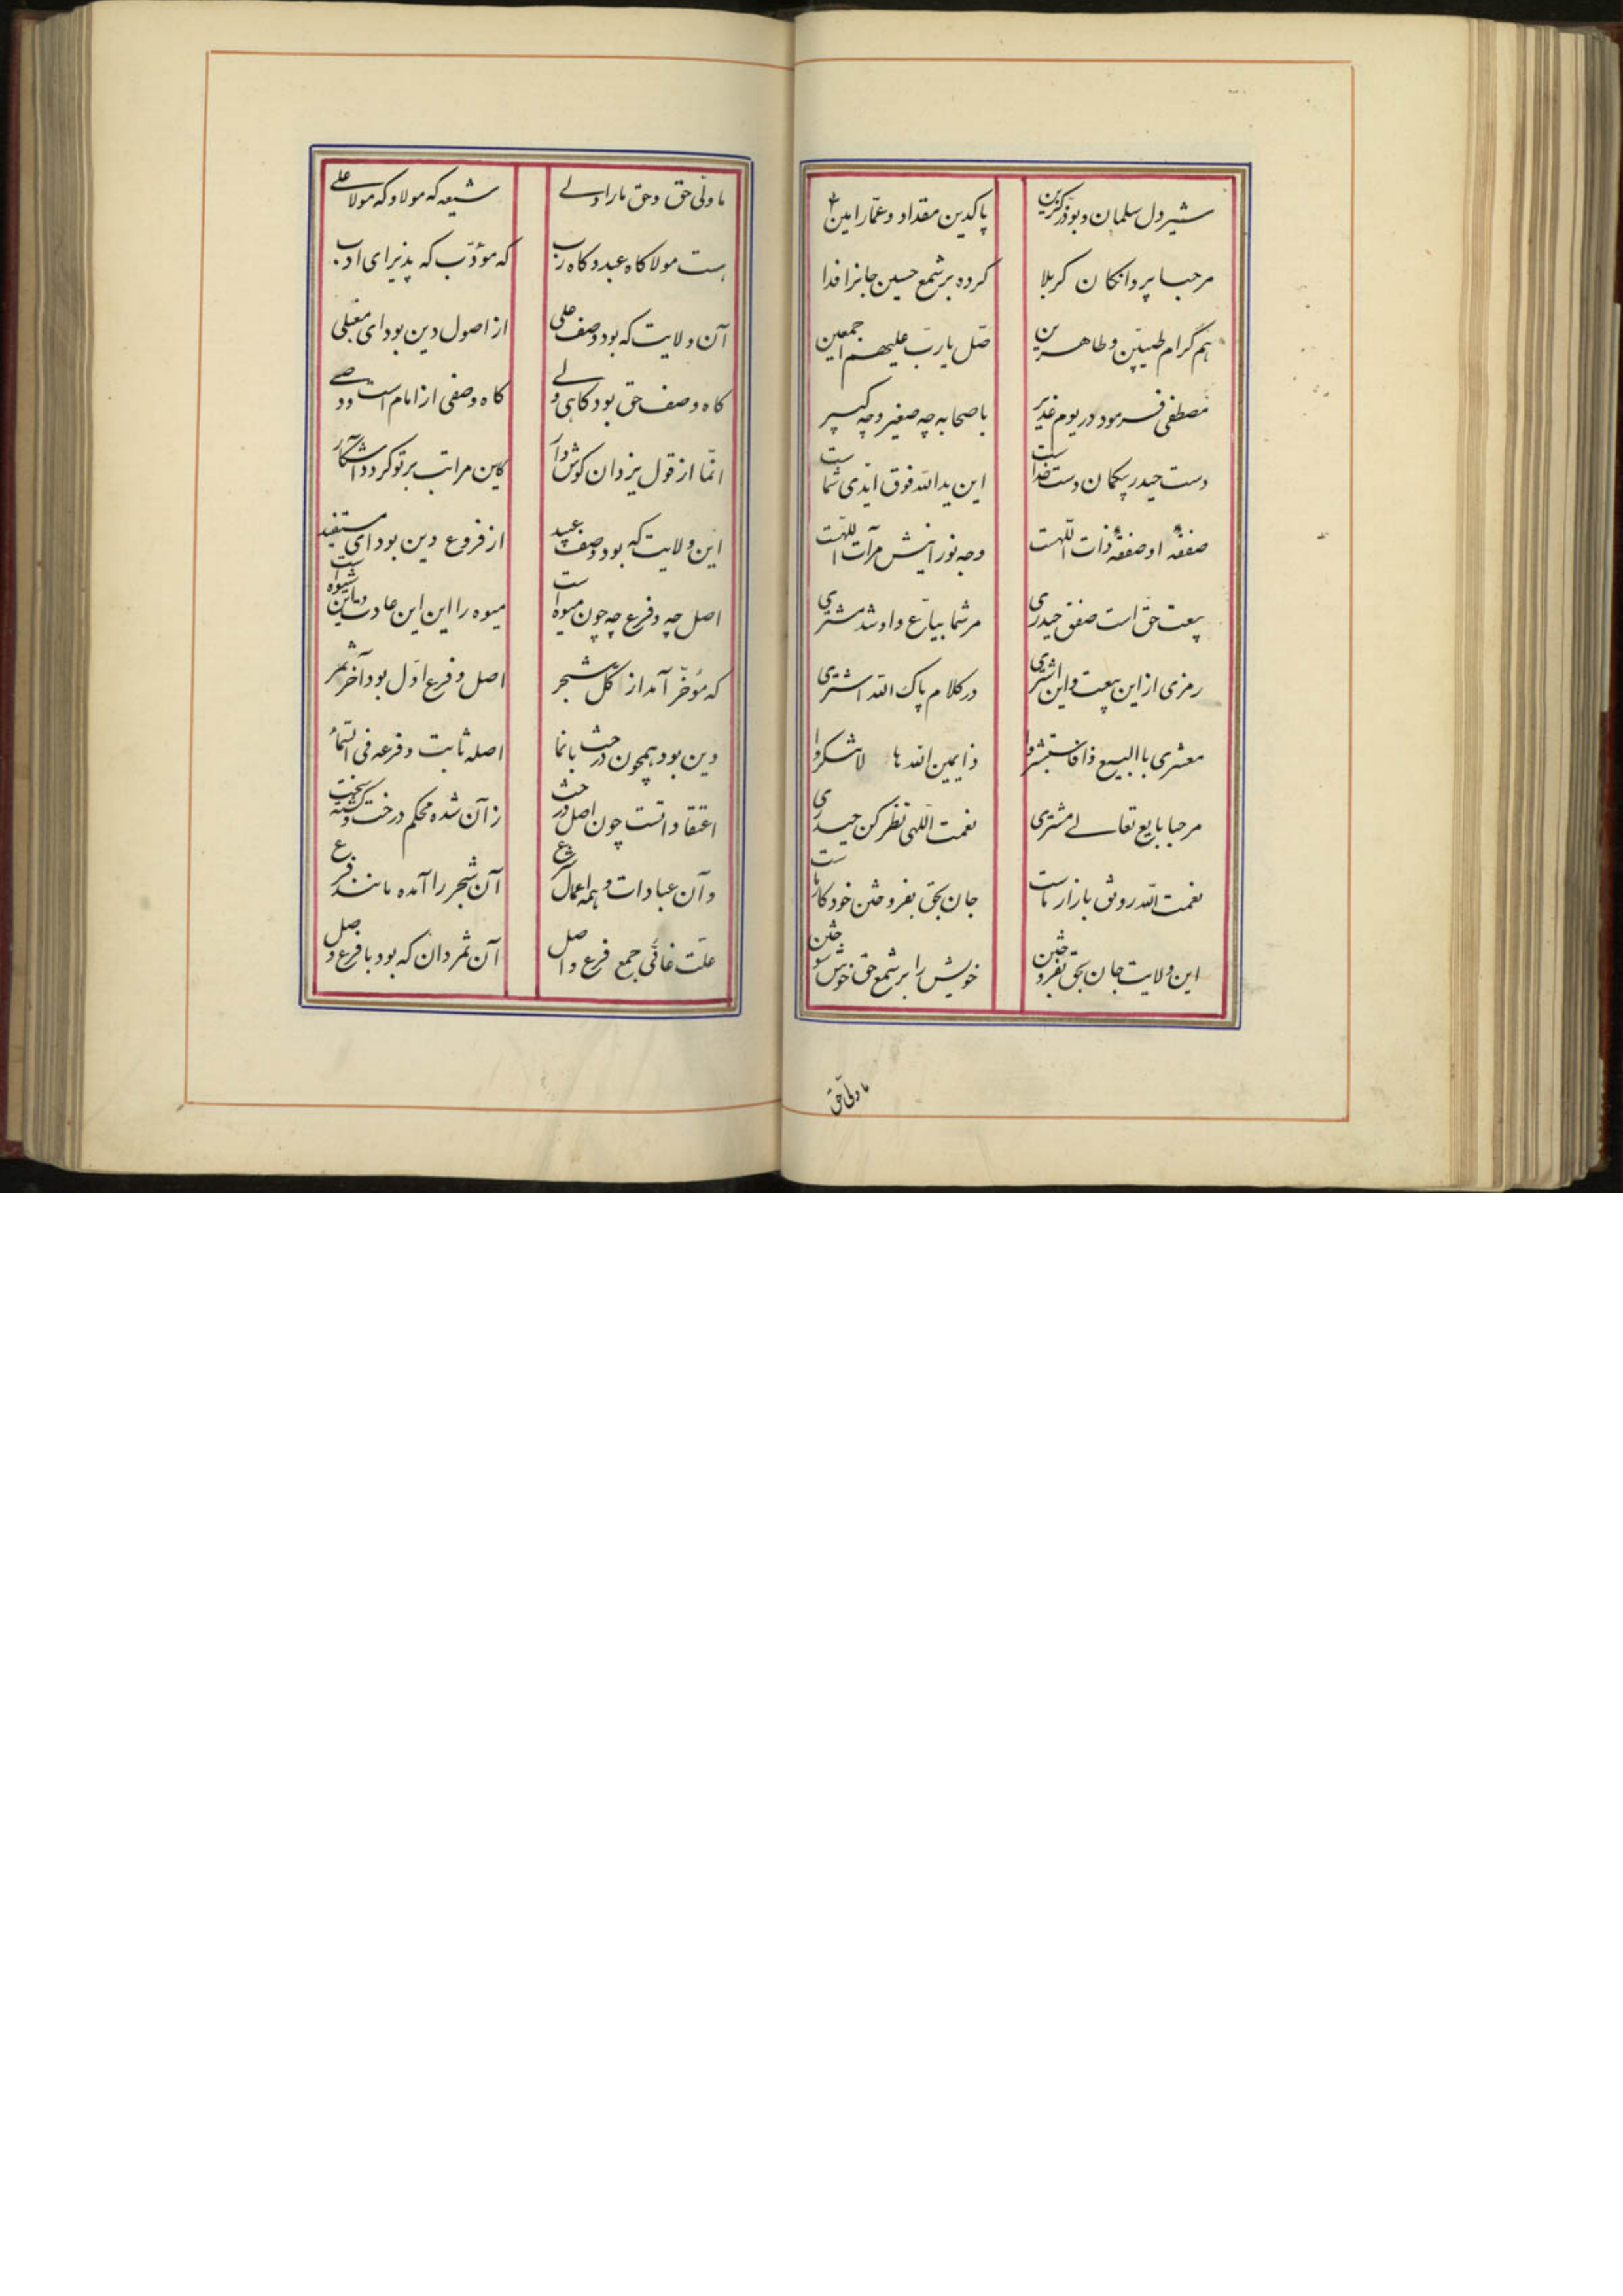 شیردل سلمان و بوذر کزین پاکدین مقداد و عمّار امین
مرحبا پروانکان کربلا کرده بر شمع حسین جانرا فدا
هم کرام طیبین و طاهرین صلّ یا ربّ علیهم اجمعین
مصطفی فرمود در یوم غدیر با صحابه چه صغیر و چه کبیر
دست حیدر بیکمان دست خداست این یدالله فوق ایدی شماست
صفقهٔ او صفقهٔ ذات اللّهست وجه نورانیش مرآت اللّهست
بیعت حق است صفق حیدری مر شما بیّاع و او شد مشتری
رمزی از این بیعت و این اشتری در کلام پاک الله اشتری
معشری باالبیع ذا فاستبشروا ذا یمین الله ها لاشکروا
مرحبا بایع تعالی مشتری نعمت اللّهی نظر کن حیدری
نعمت الله رونق بازار ماست جان بحق بفروختن خود کار ماست
این ولایت جان بحق بفروختن خویش را بر شمع حق خوش سوختن
ما ولیّ حق
ما ولیّ حق و حق ما را ولی شیعه که مولا و که مولا علی
هست مولا کاه عبد و کاه رب که مؤدّب که پذیرای ادب
آن ولایت که بود وصف علی از اصول دین بود ای مقبلی
کاه وصف حق بود کاهی ولی کاه وصفی از امام است و وصی
انّما از قول یزدان کوش دار کاین مراتب بر تو کردد آشکار
این ولایت که بود وصف عبید از فروع دین بود ای مستفید
اصل چه و فرع چه چون میوه است میوه را این این عادت و این شیوه است
که مؤخّر آمد از کل شجر اصل و فرع اوّل بود آخر ثمر
دین بود همچون درخت بانما اصله ثابت و فرعه فی السّماء
اعتقادانست چون اصل درخت زآن شده محکم درخت و کشته سخت
وآن عبادات و همه اعمال شرع آن شجر را آمده مانند فرع
علّت غائی جمع فرع و اصل آن ثمر دان که بود با فرع وصل